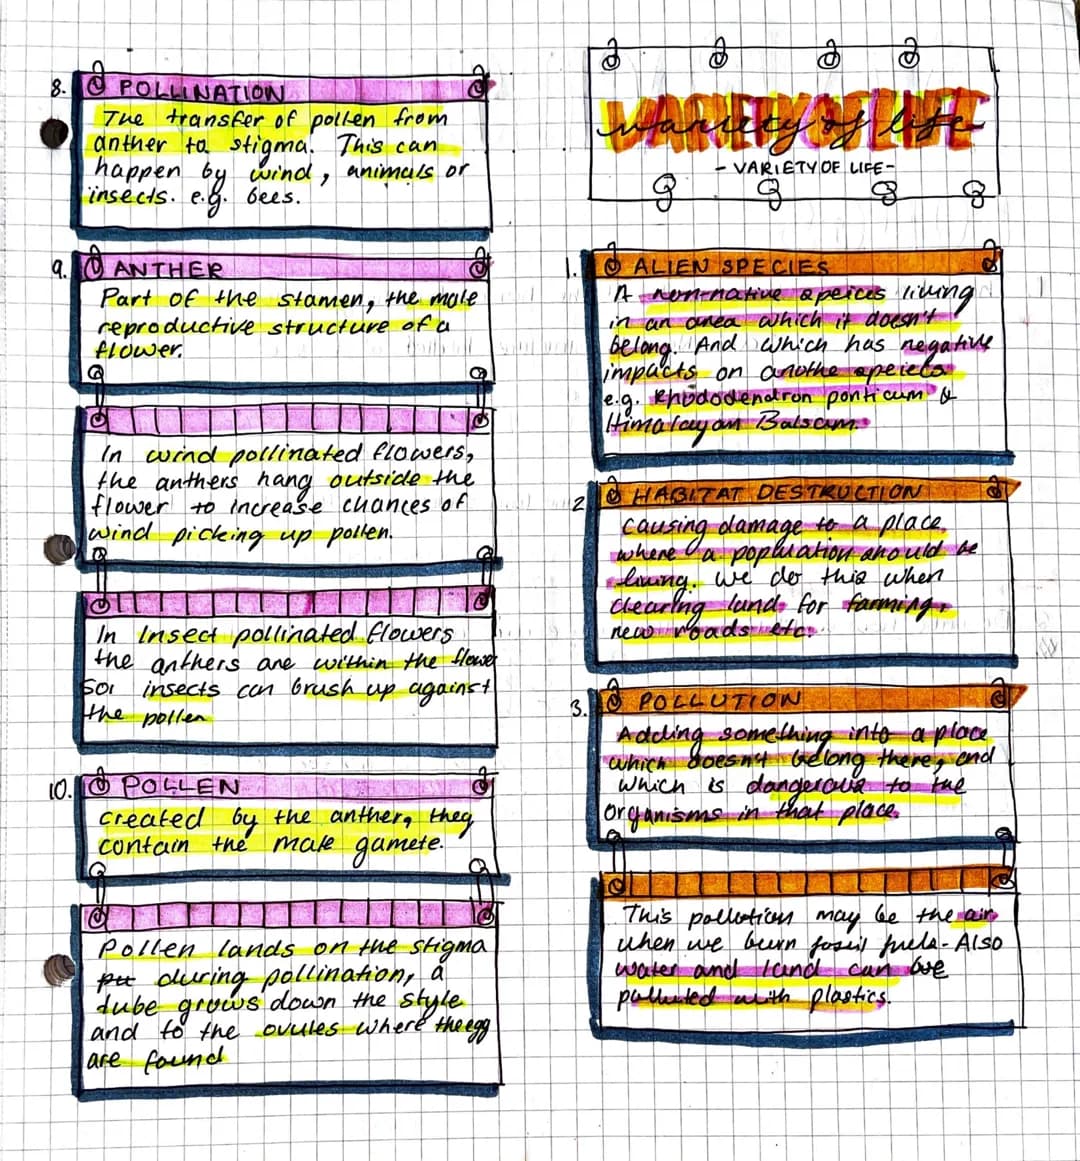 8. POLLINATION
The transfer of pollen from
anther to stigma. This can
happen by wind, animals or
insects. e.g. bees.
9. ANTHER
Part of the stamen, the male
reproductive structure of a
flower.
In wind pollinated flowers,
the anthers hang outside the
flower to increase chances of
wind picking up pollen.
In Insect pollinated flowers
the anthers are within the flower
so insects can brush up against
the pollen
10. POLLEN
created by the anther, they
contain the male gamete.
Pollen lands on the stigma
during pollination, a
tube grows down the style
and to the ovules where the egg
are found
VARIETY OF LIFE
variety of life
- VARIETY OF LIFE -
1. ALIEN SPECIES
A non-native speices living
in an area which it doesn't
belong. And which has negative
impacts on anothe speices
e.g. Rhododendron ponticum &
Himalayan Balsam.
2 HABITAT DESTRUCTION
causing damage to a place
where a population should be
living. we do this when
clearing land for farming,
new roads etc.
3. POLLUTION
Adding something into a place
which doesnt belong there, and
which is dangerous to the
organisms in that place.
This pollution may be the air
when we burn fossil fuels. Also
water and land can be
polluted with plastics.